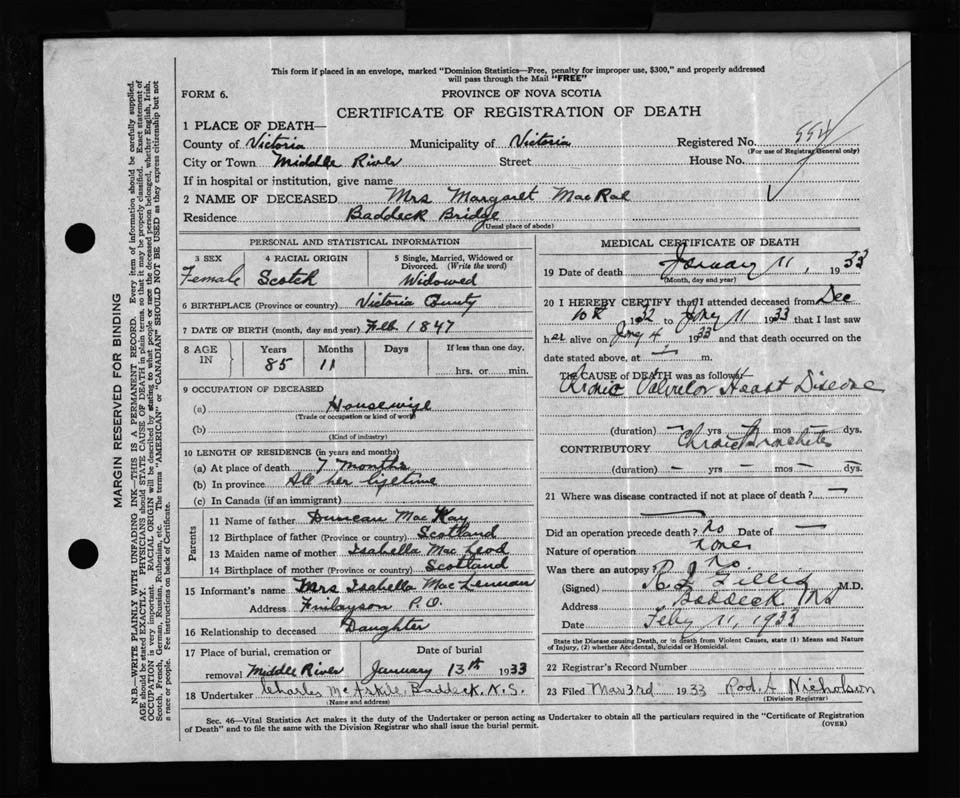 This form if placed in an envelope, marked "Dominion Statistics—Free, penalty for improper use, $300," and properly addressed
will pass through the Mail "FREE"
FORM 6.
PROVINCE OF NOVA SCOTIA
CERTIFICATE OF REGISTRATION OF DEATH
1 PLACE OF DEATH—
County of Victoria Municipality of Victoria Registered No. 554
(For use of Registrar General only)
City or Town Middle River Street House No.
If in hospital or institution, give name
2 NAME OF DECEASED Mrs Margaret MacRae
Residence Baddeck Bridge
(Usual place of abode)
PERSONAL AND STATISTICAL INFORMATION
3 SEX 4 RACIAL ORIGIN 5 Single, Married, Widowed or Divorced. (Write the word)
Female Scotch Widowed
6 BIRTHPLACE (Province or country) Victoria County
7 DATE OF BIRTH (month, day and year) Feb. 1847
8 AGE IN Years Months Days If less than one day,
85 11 hrs. or min.
9 OCCUPATION OF DECEASED
(a) Housewife
(Trade or occupation or kind of work)
(b)
(Kind of industry)
10 LENGTH OF RESIDENCE (in years and months)
(a) At place of death 7 months
(b) In province All her lifetime
(c) In Canada (if an immigrant)
Parents
11 Name of father Duncan MacKay
12 Birthplace of father (Province or country) Scotland
13 Maiden name of mother Isabella MacLeod
14 Birthplace of mother (Province or country) Scotland
15 Informant's name Mrs Isabella MacLennan
Address Finlayson P.O.
16 Relationship to deceased Daughter
17 Place of burial, cremation or removal Date of burial
Middle River January 13th 1933
18 Undertaker Charles McAskill, Baddeck, N.S.
(Name and address)
MEDICAL CERTIFICATE OF DEATH
19 Date of death January 11, 1933
(Month, day and year)
20 I HEREBY CERTIFY that I attended deceased from Dec
10th 1932 to Jany 11 1933 that I last saw
her alive on Jany 4 1933 and that death occurred on the
date stated above, at — m.
THE CAUSE OF DEATH was as follows:
Chronic Valvular Heart Disease
(duration) — yrs — mos — dys.
CONTRIBUTORY Chronic Bronchitis
(duration) — yrs — mos — dys.
21 Where was disease contracted if not at place of death? —
Did an operation precede death? No Date of —
Nature of operation none
Was there an autopsy? No
(Signed) R J Gillis M.D.
Address Baddeck NS
Date Feby 11, 1933
State the Disease causing Death, or in death from Violent Causes, state (1) Means and Nature
of Injury, (2) whether Accidental, Suicidal or Homicidal.
22 Registrar's Record Number
23 Filed Mar 3rd 1933 Rod. A Nicholson
(Division Registrar)
Sec. 46—Vital Statistics Act makes it the duty of the Undertaker or person acting as Undertaker to obtain all the particulars required in the "Certificate of Registration
of Death" and to file the same with the Division Registrar who shall issue the burial permit.
(OVER)
MARGIN RESERVED FOR BINDING
N.B.—WRITE PLAINLY WITH UNFADING INK—THIS IS A PERMANENT RECORD. Every item of information should be carefully supplied.
AGE should be stated EXACTLY. PHYSICIANS should STATE CAUSE OF DEATH in plain terms, so that it may be properly classified. Exact statement of
OCCUPATION is very important. RACIAL ORIGIN will be described by stating to what people or race the deceased person belonged, whether English, Irish,
Scotch, French, German, Russian, Ruthenian, etc. The terms "AMERICAN" or "CANADIAN" SHOULD NOT BE USED as they express citizenship but not
a race or people. Fee instructions on back of Certificate.